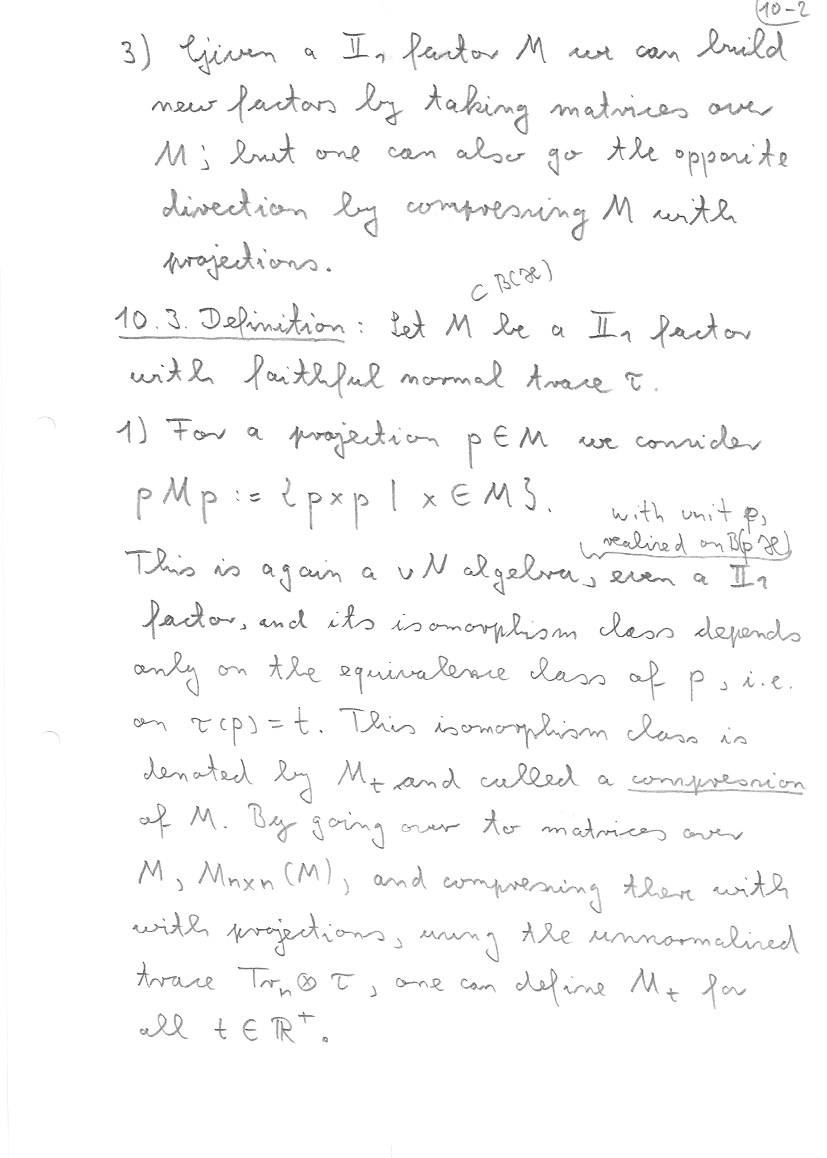 10-2
3) Given a II₁ factor M we can build
new factors by taking matrices over
M; but one can also go the opposite
direction by compressing M with
projections.
⊂ B(ℋ)
10.3. Definition: Let M be a II₁ factor
with faithful normal trace τ.
1) For a projection p ∈ M we consider
pMp := {pxp | x ∈ M}.
with unit p,
realized on B(pℋ)
This is again a vN algebra, even a II₁
factor, and its isomorphism class depends
only on the equivalence class of p, i.e.
on τ(p) = t. This isomorphism class is
denoted by Mₜ and called a compression
of M. By going over to matrices over
M, Mₙₓₙ(M), and compressing there with
with projections, using the unnormalized
trace Trₙ ⊗ τ, one can define Mₜ for
all t ∈ ℝ⁺.